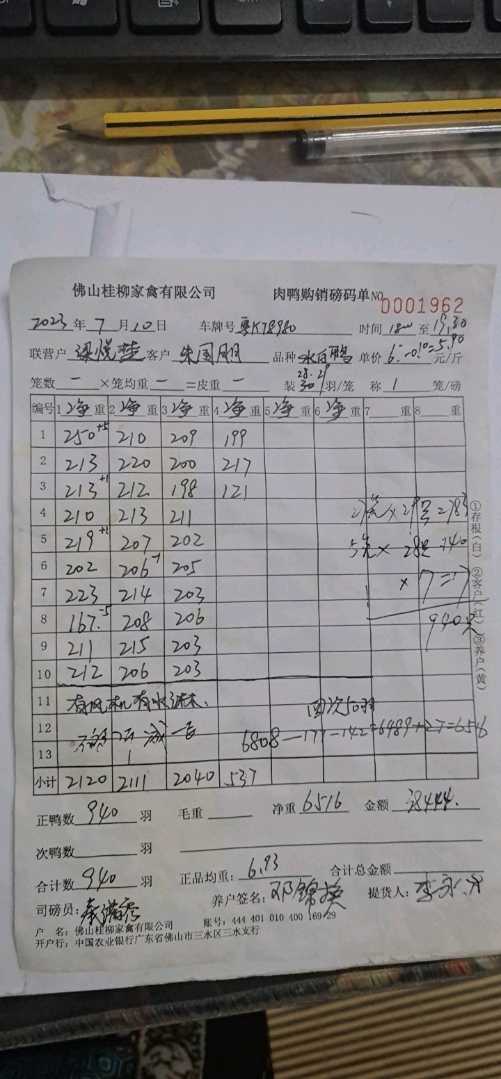 佛山桂柳家禽有限公司 肉鸭购销磅码单 NO 0001962
2023年7月10日 车牌号 粤K78980 时间 18 至 19:30
联营户 梁悦楚 客户 朱国明 品种 水白鸭 单价 6.-0.10=5.90 元/斤
笼数 一 ×笼均重 一 =皮重 一 装 28.29 30 羽/笼 称 1 笼/磅
编号 1 净重 2 净重 3 净重 4 净重 5 净重 6 净重 7 重 8 重
1 250+5 210 209 199
2 213 220 200 217
3 213+1 212 198 121
4 210 213 211
5 219+1 207 202
6 202 206-1 205
7 223 214 203
8 167.-5 208 206
9 211 215 203
10 212 206 203
11 有风机有水
12
13
27笼×29只=783
5笼×28只=140
×17=17
940只
6808-177-142=6489+27=6516
小计 2120 2111 2040 537
正鸭数 940 羽 毛重 净重 6516 金额 38444.
次鸭数 羽
合计数 940 羽 正品均重: 6.93 合计总金额
司磅员: 养户签名: 邓锦 提货人: 李永
户 名: 佛山桂柳家禽有限公司 账号: 444 401 010 400 169 29
开户行: 中国农业银行广东省佛山市三水区三水支行
①存根(白) ②客户(红) ③养户(黄)